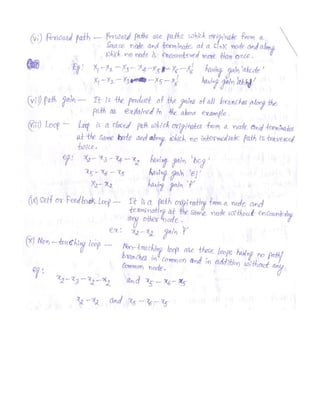 (vi) Forward path — Forward paths are paths which originate from a
Source node and terminates at a sink node and along
which no node is encountered more than once.
Eg: x₁-x₂-x₃-x₄-x₅-x₅' having gain 'abcde'
x₁-x₂-x₃-x₅-x₅' having gain
(vii) Path gain — It is the product of the gains of all branches along the
path as explained in the above example.
(viii) Loop — Loop is a closed path which originates from a node and terminates
at the same node and along which no intermediate path is traversed
twice.
eg: x₂-x₃-x₄-x₂ having gain 'bcg'
x₅-x₆-x₅ having gain 'ej'
x₂-x₂ having gain 'f'
(ix) Self or Feedback Loop — It is a path originating from a node and
terminating at the same node without encountering
any other node.
ex: x₂-x₂ gain 'f'
(x) Non-touching loop — Non-touching loops are those loops having no path/
branches in common and in addition without any
common node.
eg: x₂-x₃-x₄-x₂ and x₅-x₆-x₅
x₂-x₂ and x₅-x₆-x₅